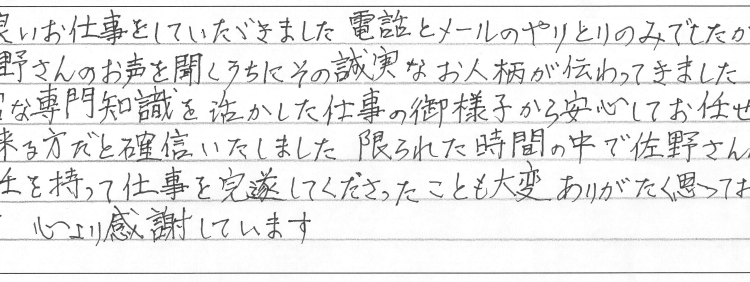 良いお仕事をしていただきました 電話とメールのやりとりのみでしたが
野さんのお声を聞くうちにその誠実なお人柄が伝わってきました
な専門知識を活かした仕事の御様子から安心してお任せ
来る方だと確信いたしました 限られた時間の中で佐野さん
任を持って仕事を完遂してくださったことも大変ありがたく思ってお
心より感謝しています